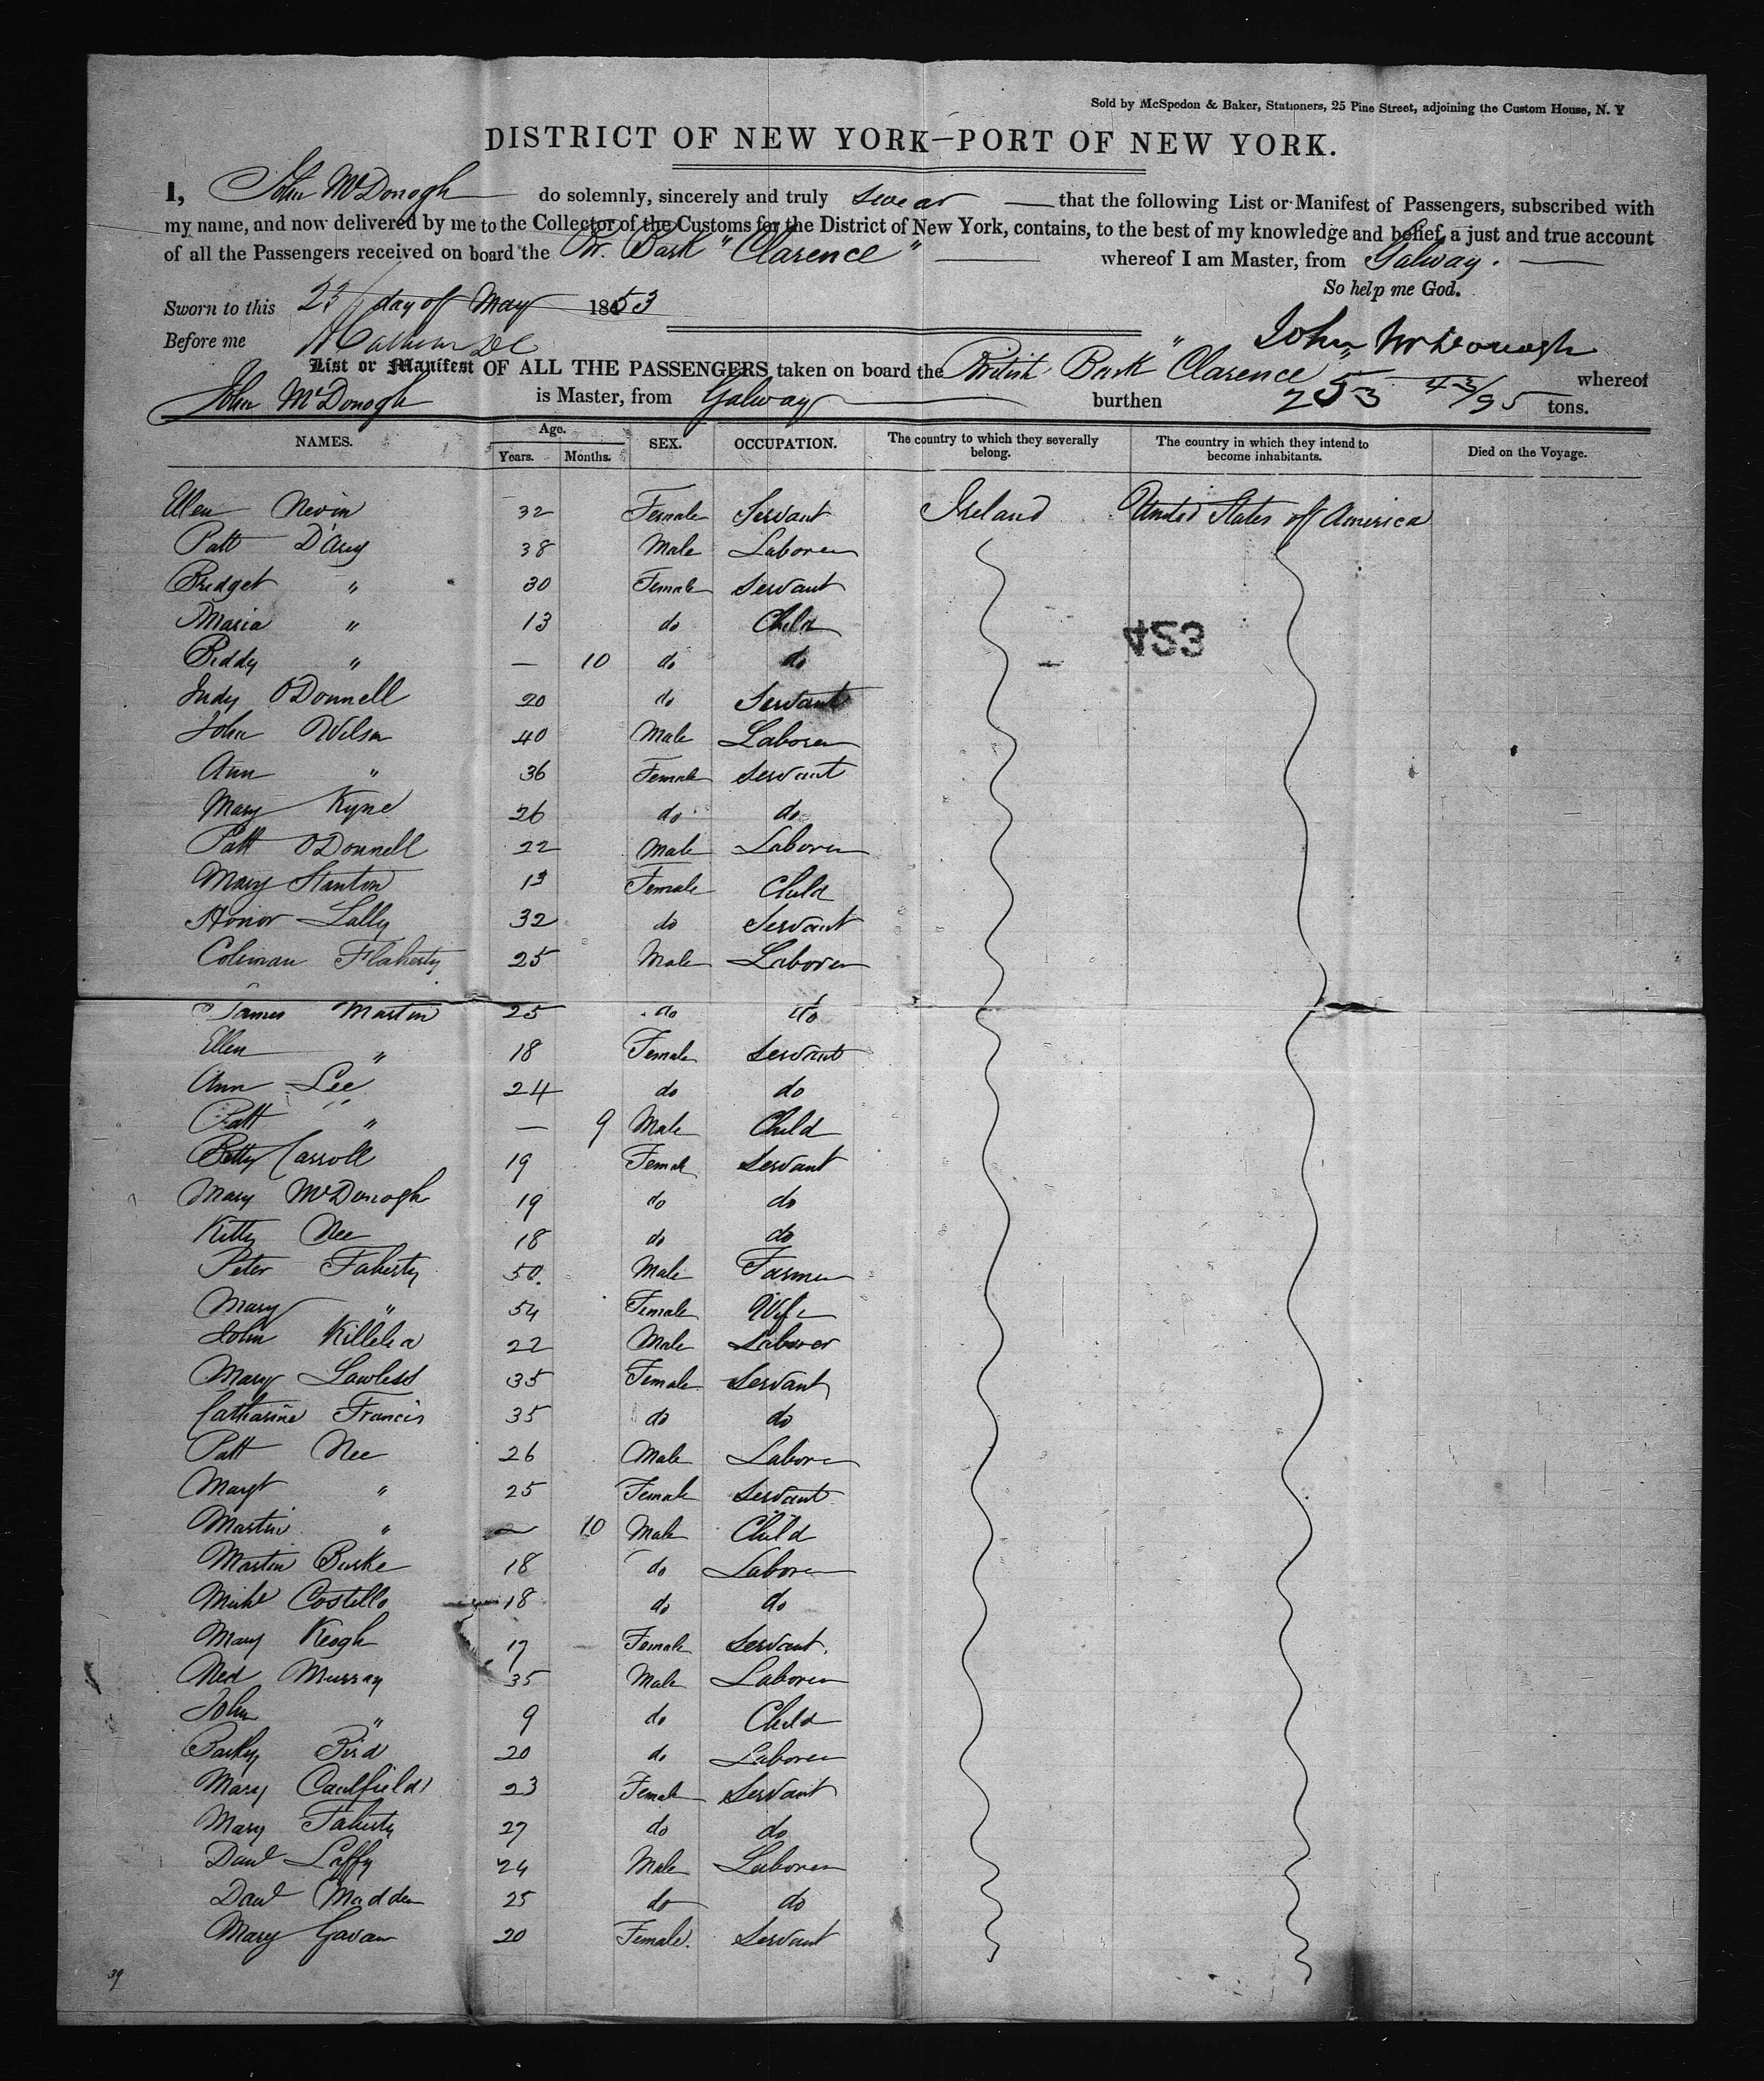 Sold by McSpedon & Baker, Stationers, 25 Pine Street, adjoining the Custom House, N. Y
DISTRICT OF NEW YORK—PORT OF NEW YORK.
I, John McDonogh do solemnly, sincerely and truly swear that the following List or Manifest of Passengers, subscribed with
my name, and now delivered by me to the Collector of the Customs for the District of New York, contains, to the best of my knowledge and belief, a just and true account
of all the Passengers received on board the Br. Bark "Clarence" whereof I am Master, from Galway.
So help me God.
Sworn to this 23 day of May 1853
Before me John McDonogh
List or Manifest OF ALL THE PASSENGERS taken on board the British Bark "Clarence" whereof
John McDonogh is Master, from Galway burthen 253 43/95 tons.
NAMES. Age. Years. Months. SEX. OCCUPATION. The country to which they severally belong. The country in which they intend to become inhabitants. Died on the Voyage.
Ellen Nevin 32 Female Servant Ireland United States of America
Patt D'Arcy 38 Male Laborer
Bridget " 30 Female Servant
Maria " 13 do Child
453
Biddy " — 10 do do
Judy O'Donnell 20 do Servant
John Wilson 40 Male Laborer
Ann " 36 Female Servant
Mary Kyne 26 do do
Patt O'Donnell 22 Male Laborer
Mary Stanton 13 Female Child
Honor Lally 32 do Servant
Coleman Flaherty 25 Male Laborer
James Martin 25 do do
Ellen " 18 Female Servant
Ann Lee 24 do do
Patt " — 9 Male Child
Betty Carroll 19 Female Servant
Mary McDonogh 19 do do
Kitty Nee 18 do do
Peter Faherty 50 Male Farmer
Mary " 54 Female Wife
John Killelea 22 Male Laborer
Mary Lawless 35 Female Servant
Catharine Francis 35 do do
Patt Nee 26 Male Laborer
Margt " 25 Female Servant
Martin " — 10 Male Child
Martin Burke 18 do Laborer
Michl Costello 18 do do
Mary Keogh 17 Female Servant.
Ned Murray 35 Male Laborer
John " 9 do Child
Barky Bird 20 do Laborer
Mary Caulfield 23 Female Servant
Mary Faherty 27 do do
Danl Laffy 24 Male Laborer
Danl Madden 25 do do
Mary Gavan 20 Female. Servant
39